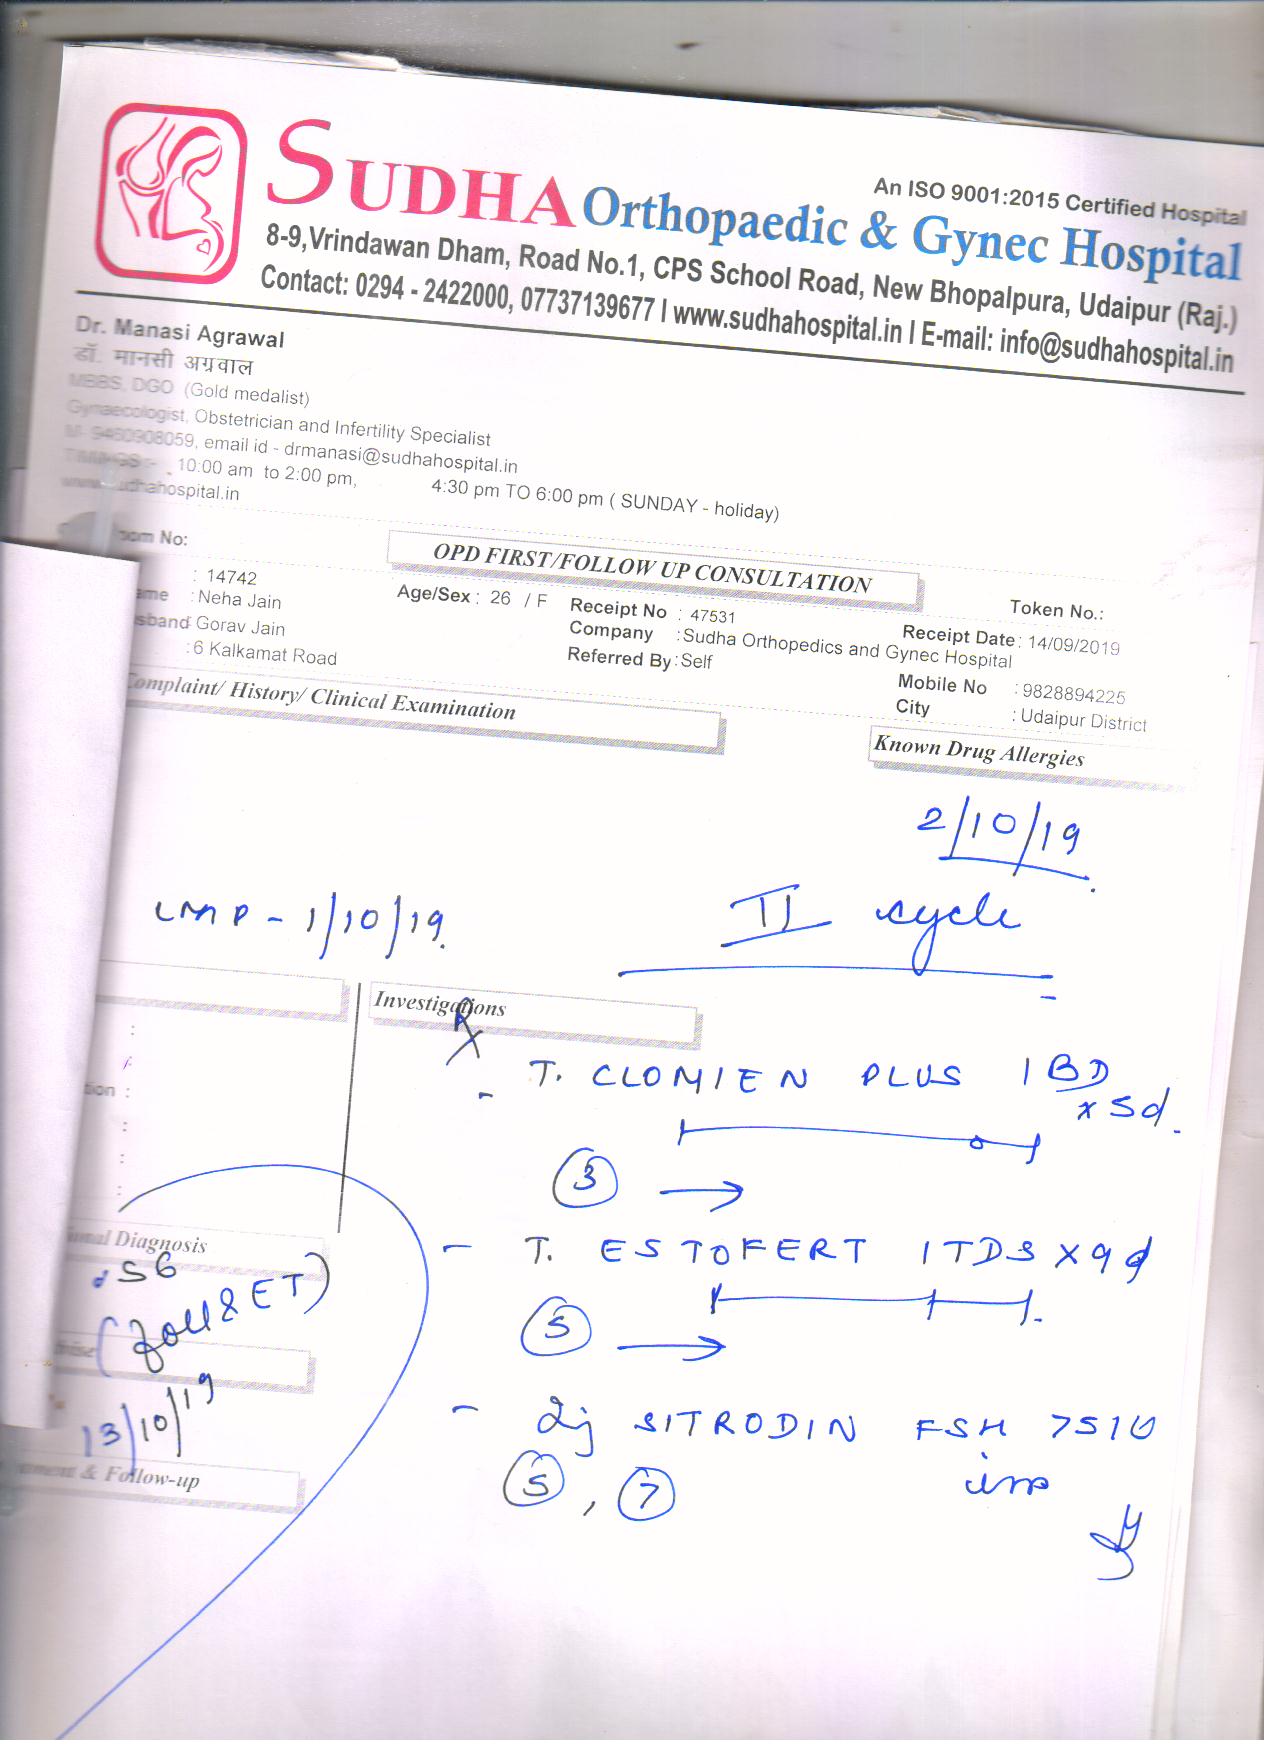 An ISO 9001:2015 Certified Hospital
SUDHA Orthopaedic & Gynec Hospital
8-9,Vrindawan Dham, Road No.1, CPS School Road, New Bhopalpura, Udaipur (Raj.)
Contact: 0294 - 2422000, 07737139677 I www.sudhahospital.in I E-mail: info@sudhahospital.in
Dr. Manasi Agrawal
डॉ. मानसी अग्रवाल
MBBS, DGO (Gold medalist)
Gynaecologist, Obstetrician and Infertility Specialist
M- 9460908059, email id - drmanasi@sudhahospital.in
TIMINGS :- 10:00 am to 2:00 pm, 4:30 pm TO 6:00 pm ( SUNDAY - holiday)
www.sudhahospital.in
oom No:
OPD FIRST/FOLLOW UP CONSULTATION
Token No.:
: 14742
Age/Sex : 26 / F
Receipt No : 47531
Receipt Date : 14/09/2019
ame : Neha Jain
Company : Sudha Orthopedics and Gynec Hospital
sband : Gorav Jain
Referred By : Self
Mobile No : 9828894225
: 6 Kalkamat Road
City : Udaipur District
Complaint/ History/ Clinical Examination
Known Drug Allergies
2/10/19
LMP - 1/10/19
II cycle
Investigations
Rx
- T. CLOMIEN PLUS 1 BD
x 5d.
3 →
tion :
- T. ESTOFERT 1 TDS X 9d
5 →
onal Diagnosis
S6
(foll & ET)
13/10/19
- Inj SITRODIN FSH 75 IU
5 , 7 im
ment & Follow-up